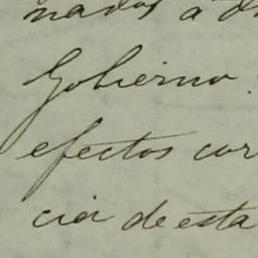 nados a d
Gobierno
efectos cor
cia de esta